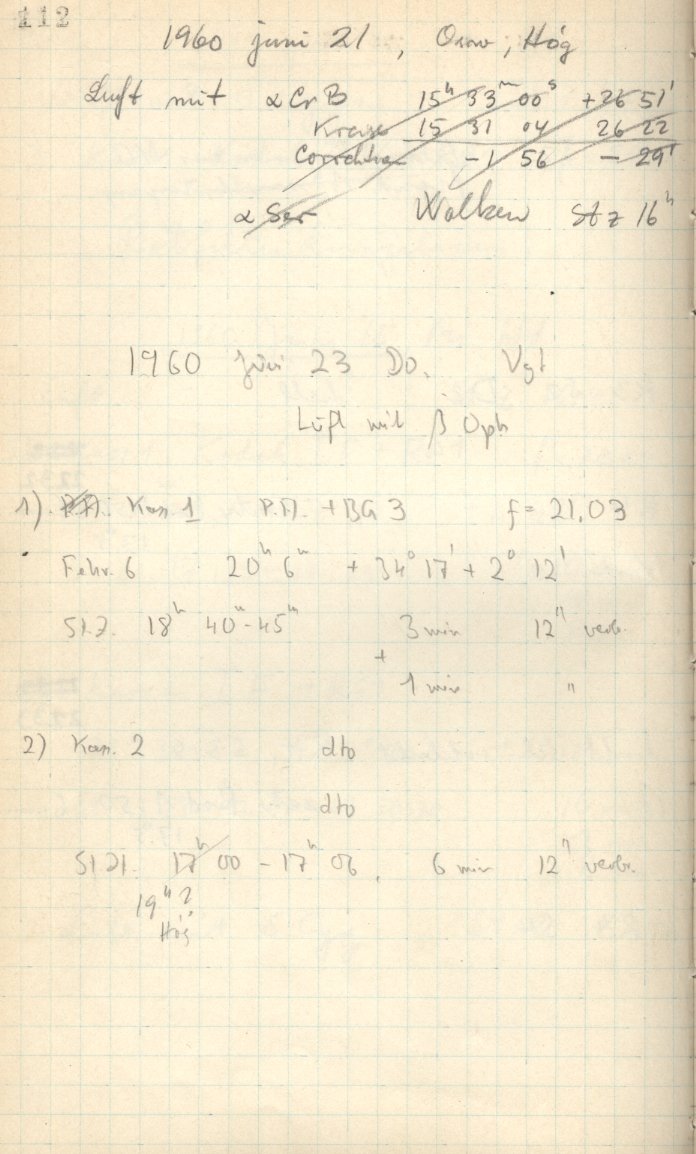 112
1960 juni 21, Orrw, Hög
Luft mit α Cr B 15ʰ 33ᵐ 00ˢ +26 51'
Kreise 15 31 04 26 22
Correction -1 56 - 29'
α Ser Wolken St z 16ʰ
1960 Juni 23 Do. Vgt
Luft mit β Oph
1) P.A. Kam 1 P.A. + BG 3 f = 21,03
Fehr. 6 20ʰ 6ᵐ + 34° 17' + 2° 12'
St.Z. 18ʰ 40ᵐ-45ᵐ 3 min 12" verbr.
+
1 min "
2) Kam. 2 dto
dto
St Zt. 17ʰ 00 - 17ʰ 06, 6 min 12" verbr.
19ʰ ?
Hög